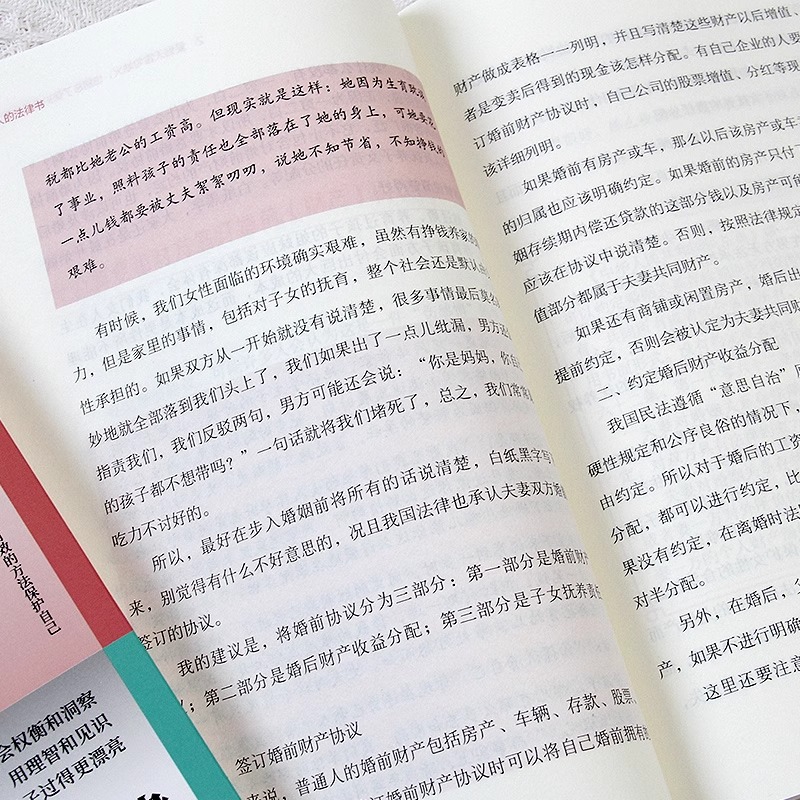 人的法律书
税都比她老公的工资高。但现实就是这样：她因为生育耽
了事业，照料孩子的责任也全部落在了她的身上，可她
一点儿钱都要被丈夫絮絮叨叨，说她不知节省，不知挣钱
艰难。
有时候，我们女性面临的环境确实艰难，虽然有挣钱养家的
力，但是家里的事情，包括对子女的抚育，整个社会还是默认
性承担的。如果双方从一开始就没有说清楚，很多事情最后莫名
妙地就全部落到我们头上了，我们如果出了一点儿纰漏，男方
指责我们，我们反驳两句，男方可能还会说：“你是妈妈，你
的孩子都不想带吗？”一句话就将我们堵死了，总之，我们常常
吃力不讨好的。
所以，最好在步入婚姻前将所有的话说清楚，白纸黑字写
来，别觉得有什么不好意思的，况且我国法律也承认夫妻双方婚前
签订的协议。
我的建议是，将婚前协议分为三部分：第一部分是婚前财产
；第二部分是婚后财产收益分配；第三部分是子女抚养责任
签订婚前财产协议
来说，普通人的婚前财产包括房产、车辆、存款、股票、
订婚前财产协议时可以将自己婚前拥有的
财产做成表格一一列明，并且写清楚这些财产以后增值、
者是变卖后得到的现金该怎样分配。有自己企业的人要
订婚前财产协议时，自己公司的股票增值、分红等现
该详细列明。
如果婚前有房产或车，那么以后该房产或车
的归属也应该明确约定。如果婚前的房产只付了
姻存续期内偿还贷款的这部分钱以及房产可能
应该在协议中说清楚。否则，按照法律规定
值部分都属于夫妻共同财产。
如果还有商铺或闲置房产，婚后出
提前约定，否则会被认定为夫妻共同财
二、约定婚后财产收益分配
我国民法遵循“意思自治”原
硬性规定和公序良俗的情况下，
由约定。所以对于婚后的工资
分配，都可以进行约定，比
果没有约定，在离婚时法
对半分配。
另外，在婚后，
产，如果不进行明确
这里还要注意
效的方法保护自己
会权衡和洞察
用理智和见识
子过得更漂亮